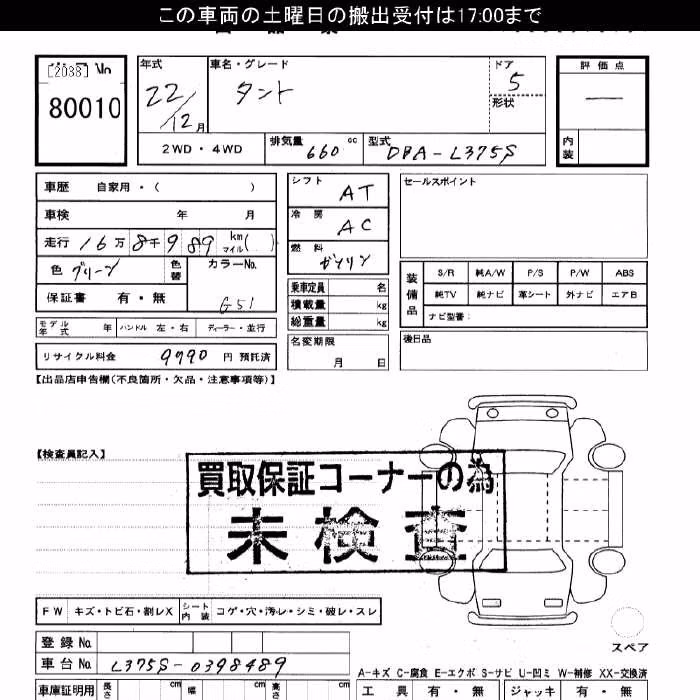 この車両の土曜日の搬出受付は17:00まで
[2088] No
80010
年式 22/12月
車名・グレード タント
ドア 5
形状
評価点 —
内装
2WD・4WD
排気量 660 cc
型式 DBA-L375S
車歴 自家用・( )
車検 年 月
走行 16万8千989 km マイル( )
色 グリーン
色替
カラーNo. G51
保証書 有・無
シフト AT
冷房 AC
燃料 ガソリン
乗車定員 名
積載量 kg
総重量 kg
セールスポイント
装備品
S/R 純A/W P/S P/W ABS
純TV 純ナビ 革シート 外ナビ エアB
ナビ型番:
モデル年式 年 ハンドル 左・右 ディーラー・並行
リサイクル料金 9790 円 預託済
名変期限 月 日
後日品
【出品店申告欄(不良箇所・欠品・注意事項等)】
【検査員記入】
買取保証コーナーの為
未検査
FW キズ・トビ石・割レX
シート内装 コゲ・穴・汚レ・シミ・破レ・スレ
スペア
登録No.
車台No. L375S-0398489
A-キズ C-腐食 E-エクボ S-サビ U-凹ミ W-補修 XX-交換済
車庫証明用 長さ cm 幅 cm 高さ cm
工具 有・無 ジャッキ 有・無